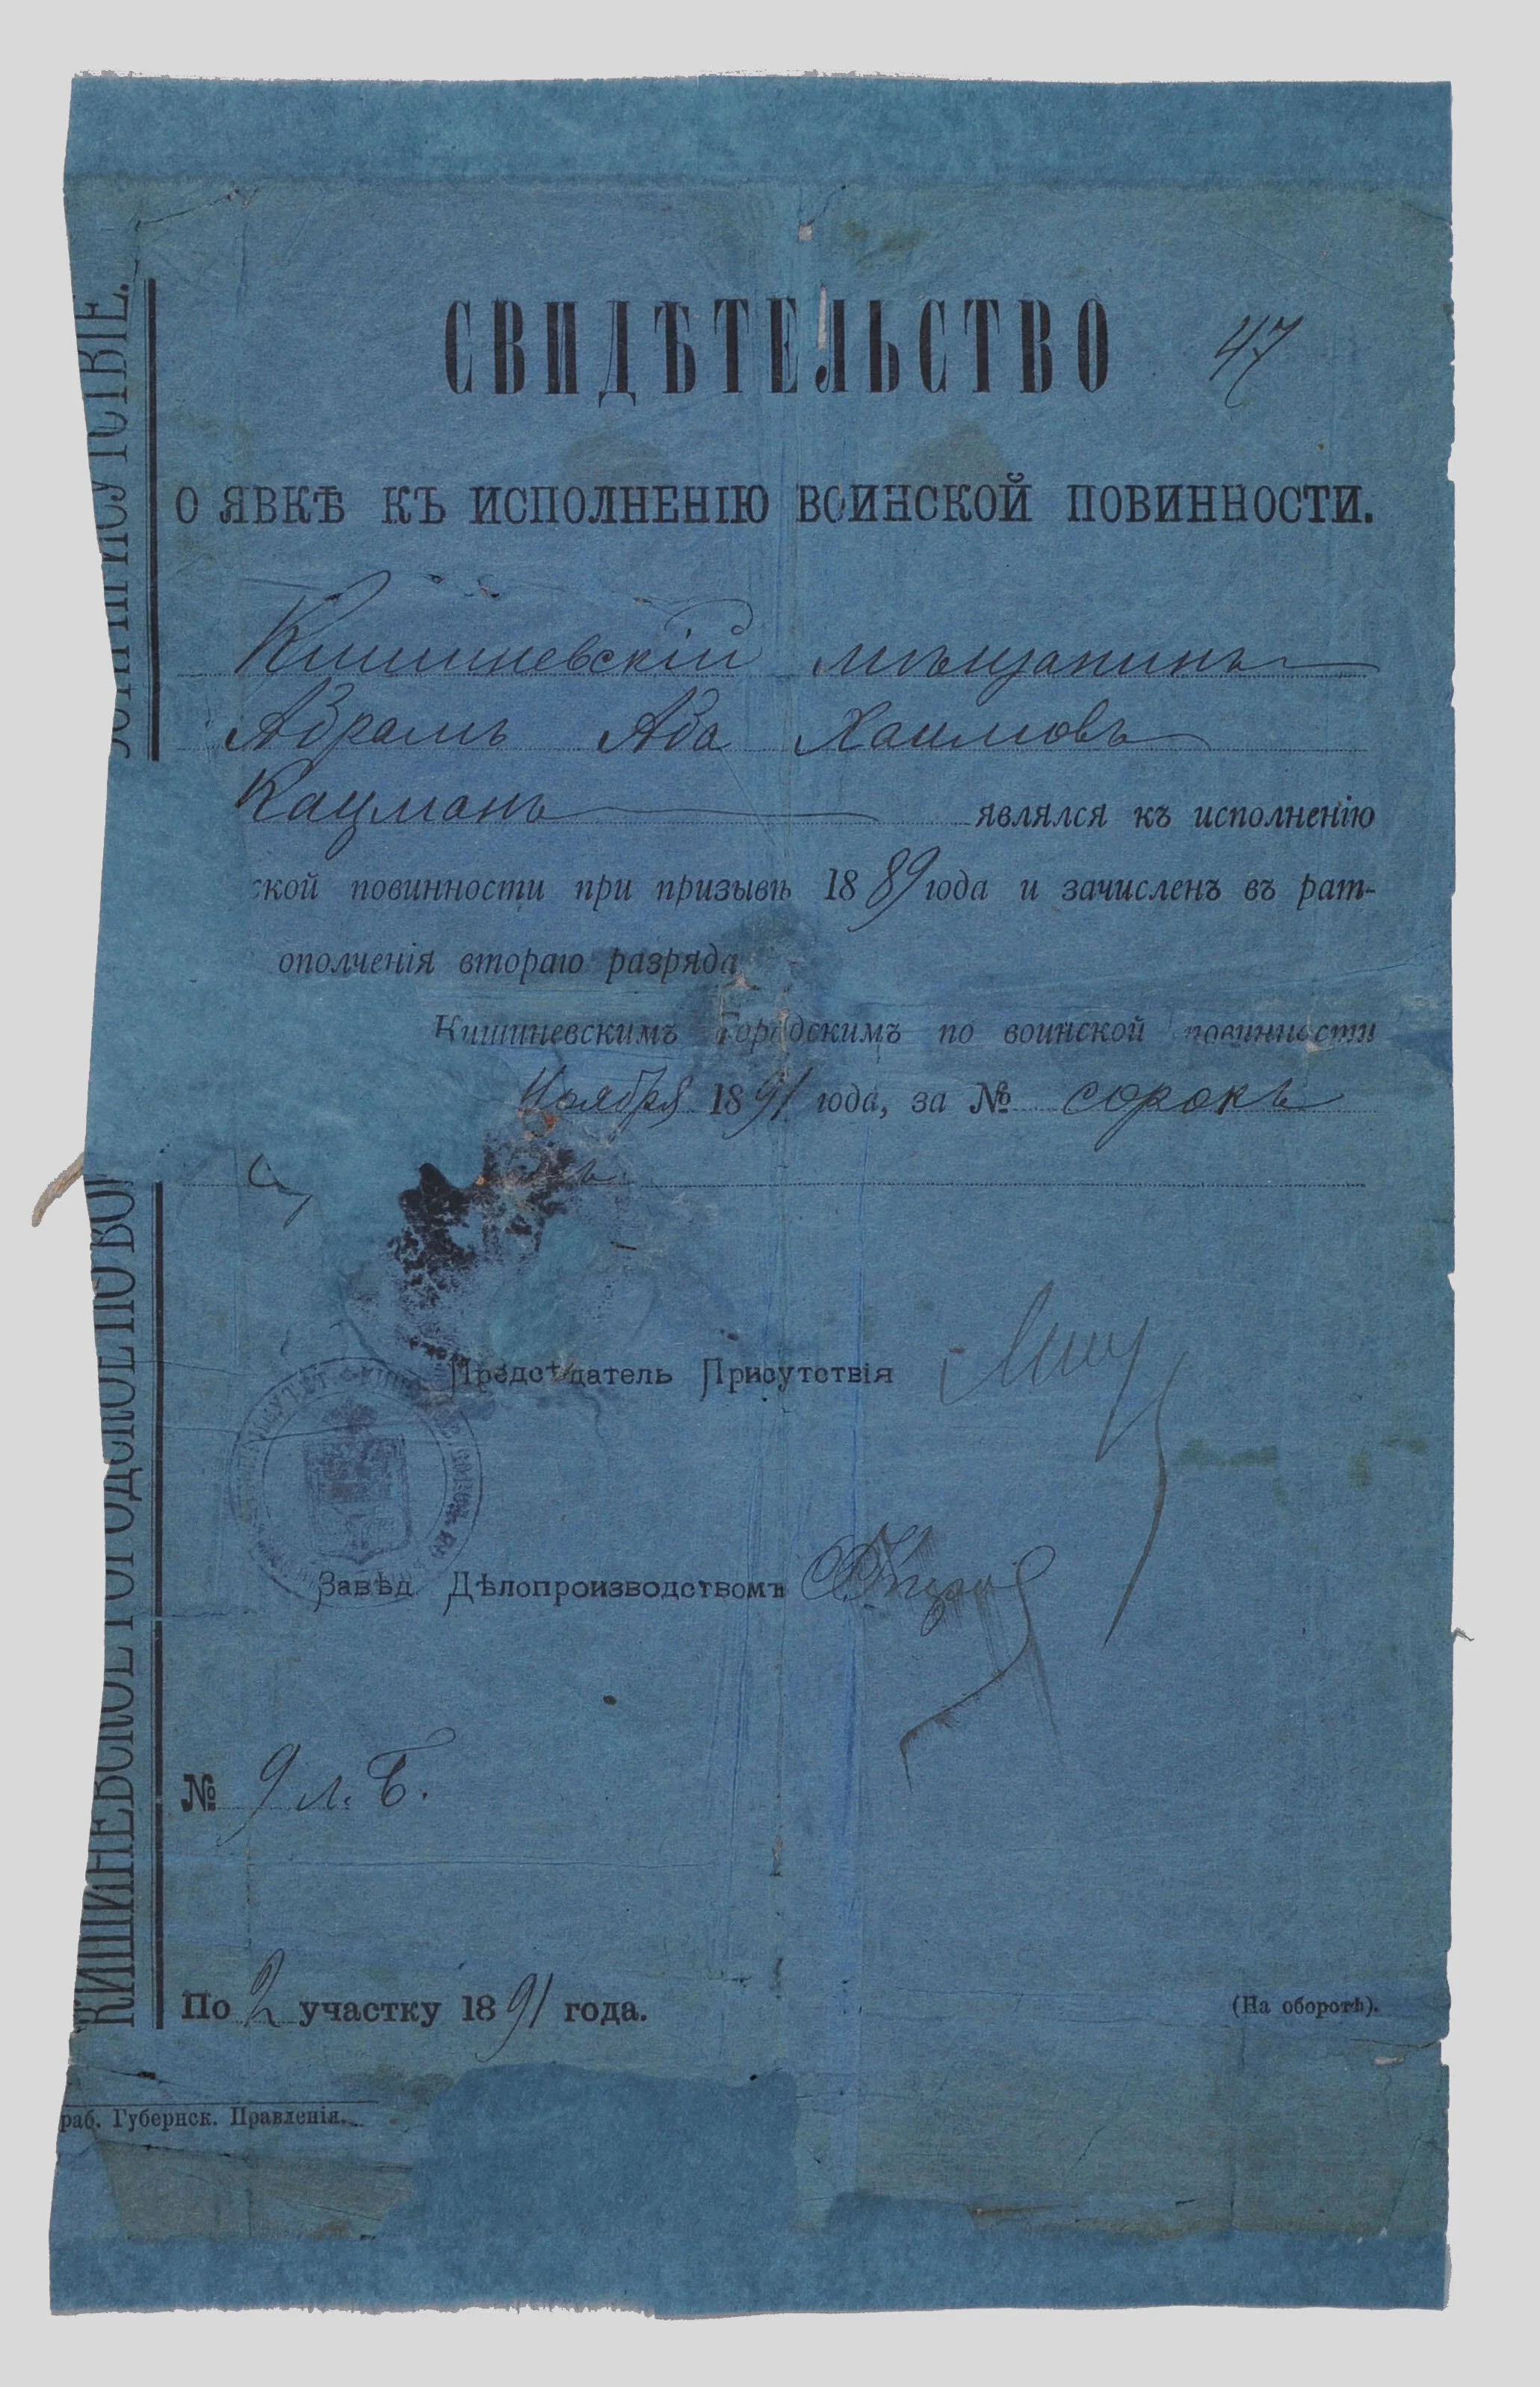 СВИДѢТЕЛЬСТВО
47
О ЯВКѢ КЪ ИСПОЛНЕНІЮ ВОИНСКОЙ ПОВИННОСТИ.
Кишиневскій мѣщанинъ
Абрамъ Аба Хаимовъ
Кацманъ являлся къ исполненію
ской повинности при призывѣ 1889 года и зачисленъ въ рат-
ополченія втораго разряда
Кишиневскимъ городскимъ по воинской повинности
Ноября 1891 года, за № сорокъ
Предсѣдатель Присутствія
Завѣд. Дѣлопроизводствомъ
№ 9 л. Б.
По 2 участку 1891 года.
(На оборотѣ).
раб. Губернск. Правленія.
КИШИНЕВСКОЕ ГОРОДСКОЕ ПО ВОИ
ПРИСУТСТВІЕ.